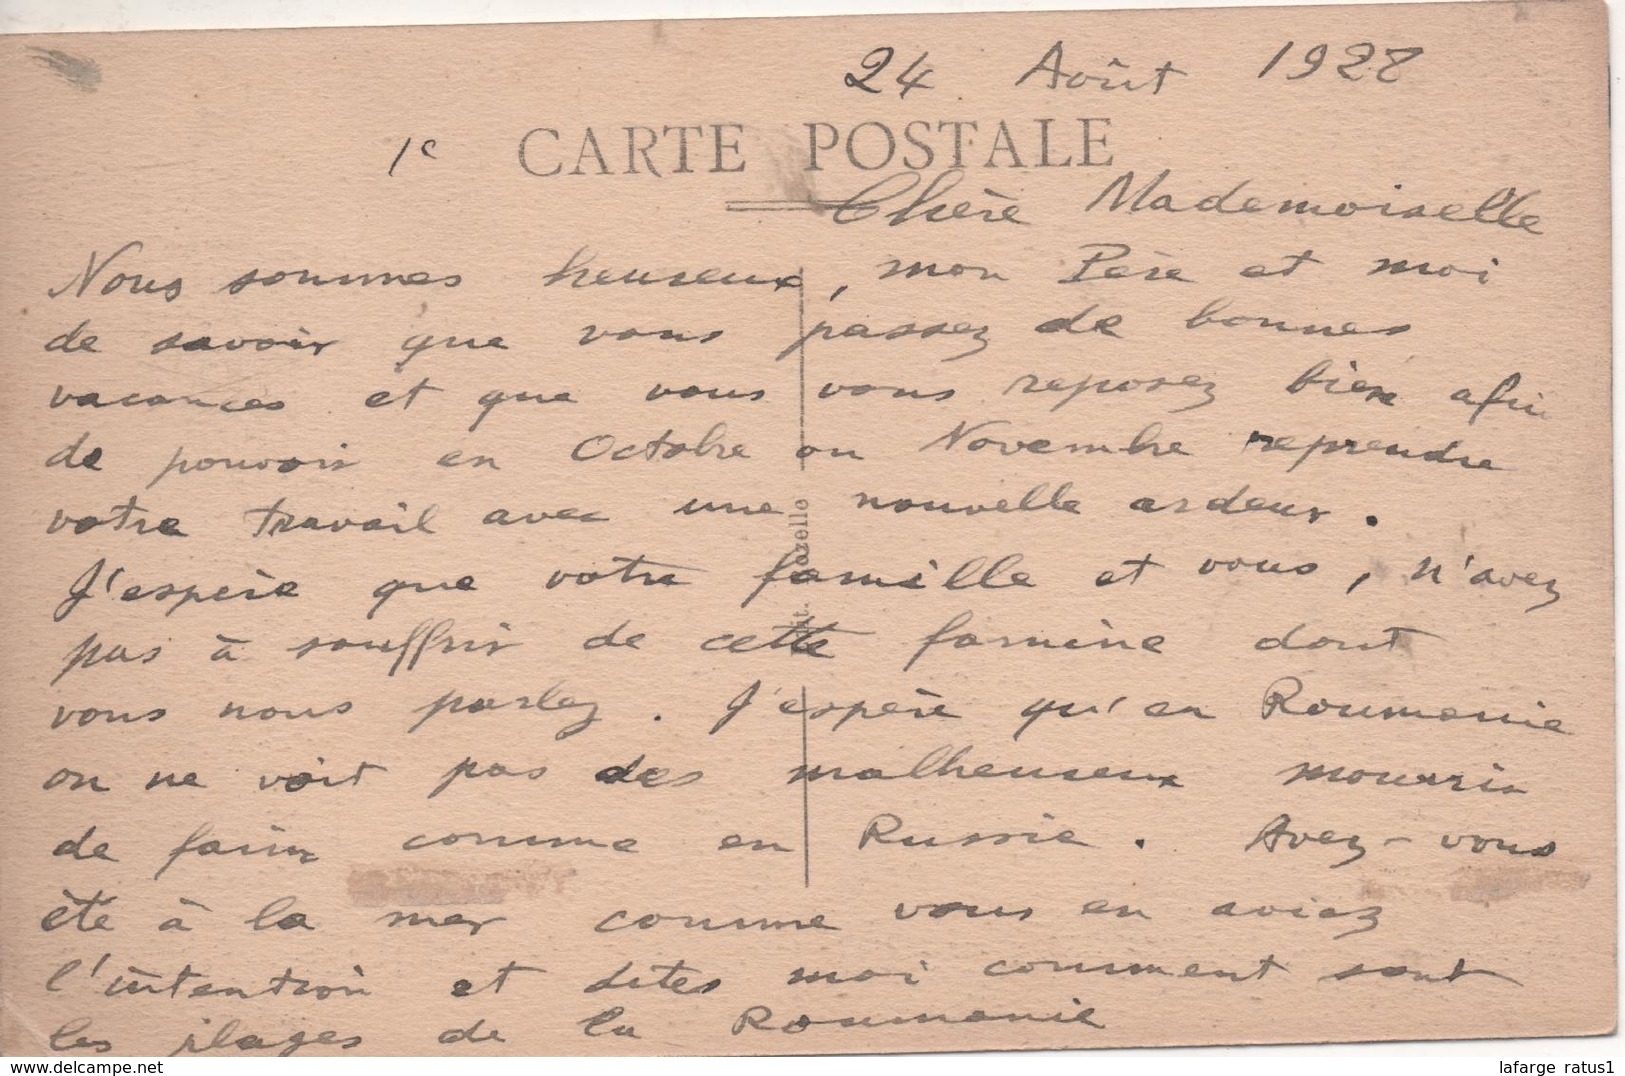 24 Août 1922
1e CARTE POSTALE
Chère Mademoiselle
Nous sommes heureux, mon Père et moi
de savoir que vous passez de bonnes
vacances et que vous vous reposez bien afin
de pouvoir en Octobre ou Novembre reprendre
votre travail avec une nouvelle ardeur.
J'espère que votre famille et vous, n'avez
pas à souffrir de cette famine dont
vous nous parlez. J'espère qu'en Roumanie
on ne voit pas des malheureux mourrir
de faim comme en Russie. Avez-vous
été à la mer comme vous en aviez
l'intention et dites moi comment sont
les plages de la Roumanie
lafarge ratus1